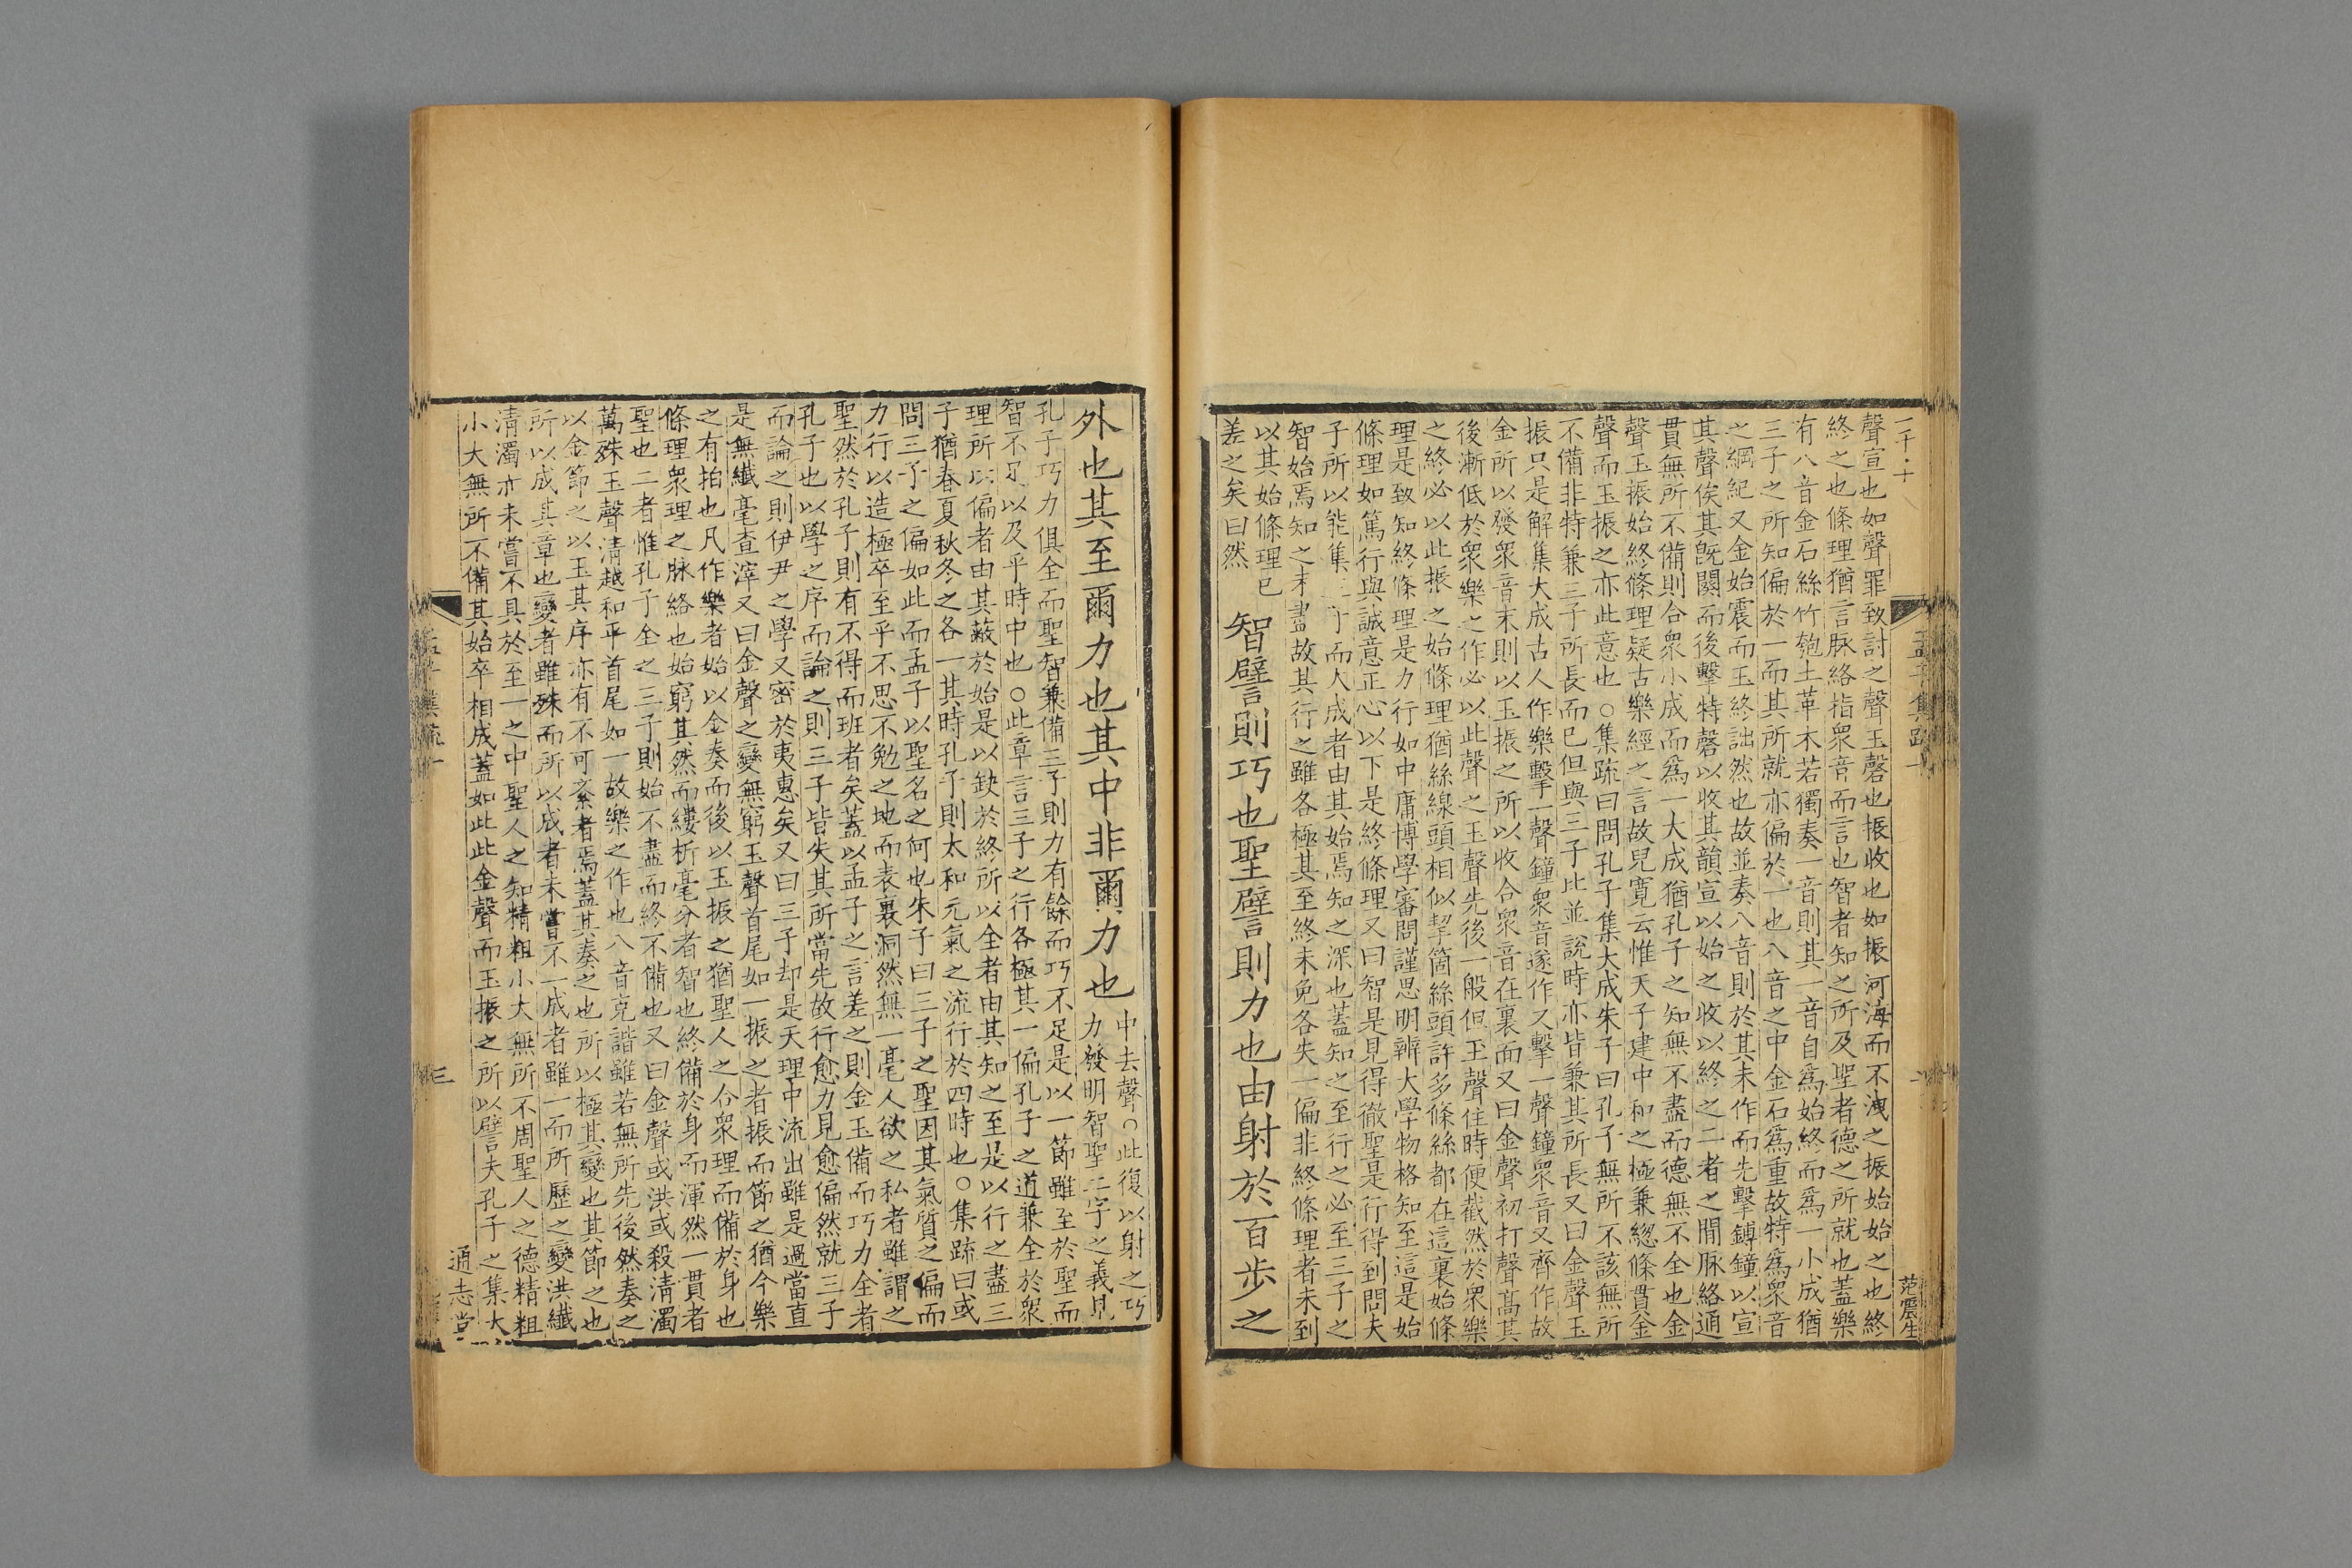 聲宣也如聲罪致討之聲玉磬也振收也如振河海而不洩之振始始之也終
終之也條理猶言脉絡指衆音而言也智者知之所及聖者德之所就也蓋樂
有八音金石絲竹匏土革木若獨奏一音則其一音自爲始終而爲一小成猶
三子之所知偏於一而其所就亦偏於一也八音之中金石爲重故特爲衆音
之綱紀又金始震而玉終詘然也故並奏八音則於其未作而先擊鎛鐘以宣
其聲俟其旣闋而後擊特磬以收其韻宣以始之收以終之二者之間脈絡通
貫無所不備則合衆小成而爲一大成猶孔子之知無不盡而德無不全也金
聲玉振始終條理疑古樂經之言故兒寬云惟天子建中和之極兼緫條貫金
聲而玉振之亦此意也○集疏曰問孔子集大成朱子曰孔子無所不該無所
不備非特兼三子所長而已但與三子比並說時亦皆兼其所長又曰金聲玉
振只是解集大成古人作樂擊一聲鐘衆音遂作又擊一聲鐘衆音又齊作故
金所以發衆音末則以玉振之所以收合衆音在裏面又曰金聲初打聲髙其
後漸低於衆樂之作必以此聲之玉聲先後一般但玉聲住時便截然於衆樂
之終必以此振之始條理猶絲線頭相似挈箇絲頭許多條絲都在這裏始條
理是致知終條理是力行如中庸博學審問謹思明辨大學物格知至這是始
條理如篤行與誠意正心以下是終條理又曰智是見得徹聖是行得到問夫
子所以能集而大成者由其始焉知之深也蓋知之至行之必至三子之
智始焉知之未盡故其行之雖各極其至終未免各失一偏非終條理者未到
以其始條理已
差之矣曰然
智譬則巧也聖譬則力也由射於百步之
外也其至爾力也其中非爾力也
中去聲○此復以射之巧
力發明智聖二字之義見
孔子巧力俱全而聖智兼備三子則力有餘而巧不足是以一節雖至於聖而
智不足以及乎時中也○此章言三子之行各極其一偏孔子之道兼全於衆
理所以偏者由其蔽於始是以缺於終所以全者由其知之至是以行之盡三
子猶春夏秋冬之各一其時孔子則太和元氣之流行於四時也○集疏曰或
問三子之偏如此而孟子以聖名之何也朱子曰三子之聖因其氣質之偏而
力行以造極卒至乎不思不勉之地而表裏洞然無一毫人欲之私者雖謂之
聖然於孔子則有不得而班者矣蓋以孟子之言差之則金玉備而巧力全者
孔子也以學之序而論之則三子皆失其所當先故行愈力見愈偏然就三子
而論之則伊尹之學又密於夷惠矣又曰三子却是天理中流出雖是過當直
是無纎毫查滓又曰金聲之變無窮玉聲首尾如一振之者振而節之猶今樂
之有拍也凡作樂者始以金奏而後以玉振之猶聖人之合衆理而備於身也
條理衆理之脉絡也始窮其然而縷析毫分者智也終備於身而渾然一貫者
聖也二者惟孔子全之三子則始不盡而終不備也又曰金聲或洪或殺淸濁
萬殊玉聲淸越和平首尾如一故樂之作也八音克諧雖若無所先後然奏之
以金節之以玉其序亦有不可紊者焉蓋其奏之也所以極其變也其節之也
所以成其章也變者雖殊而所以成者未嘗不一成者雖一而所歷之變洪纎
淸濁亦未嘗不具於至一之中聖人之知精粗小大無所不周聖人之德精粗
小大無所不備其始卒相成蓋如此此金聲而玉振之所以譬夫孔子之集大
范震生
三
通志堂